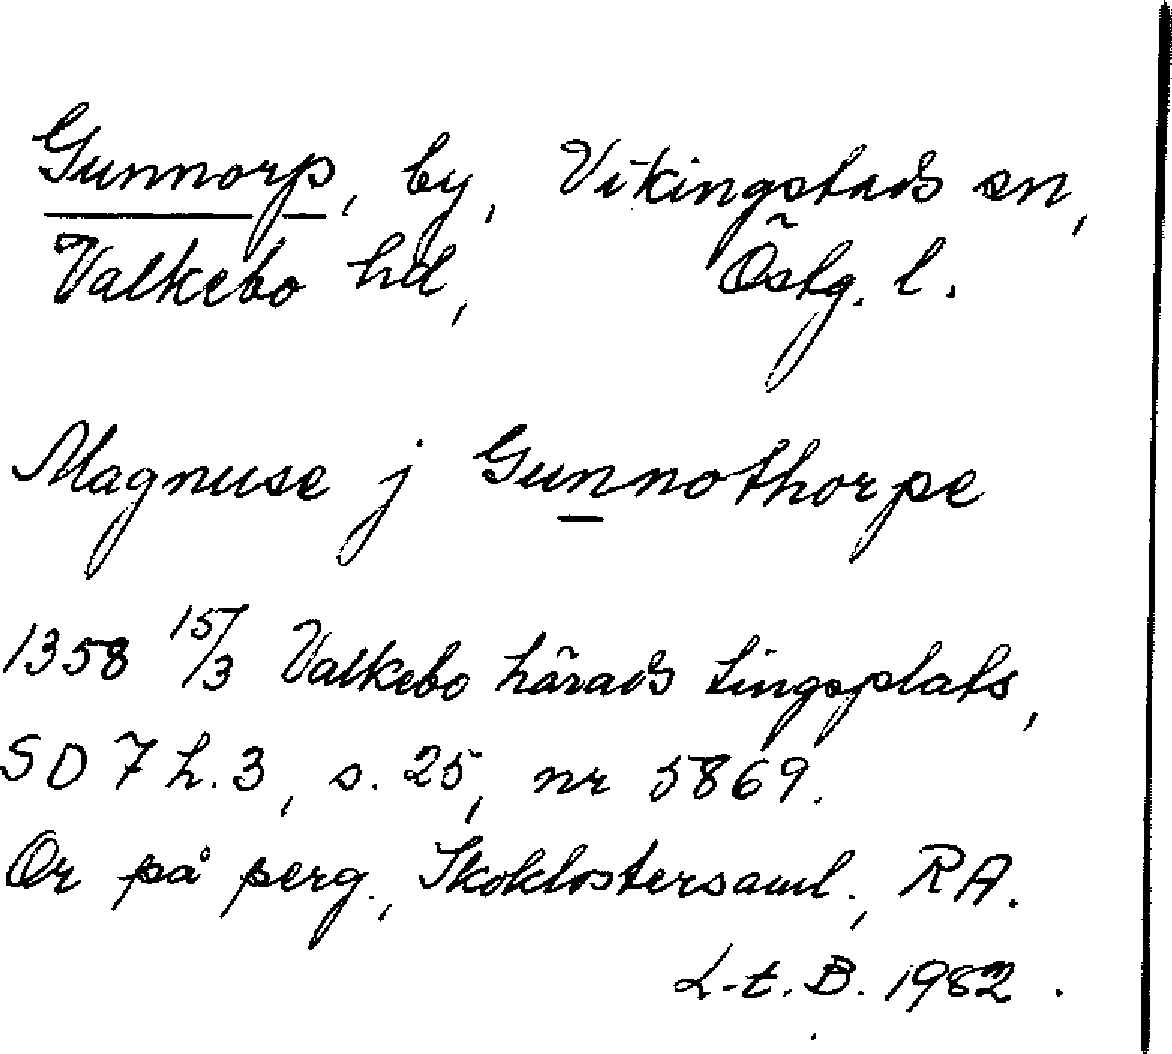 Gunnorp, by, Vikingstads sn,
Valkebo hd, Östg. l.
Magnuse j Gunnothorpe
1358 15/3 Valkebo härads tingsplats,
SD 7 h. 3, s. 25, nr 5869.
Or på perg., Skoklostersaml., RA.
L-t. B. 1962.